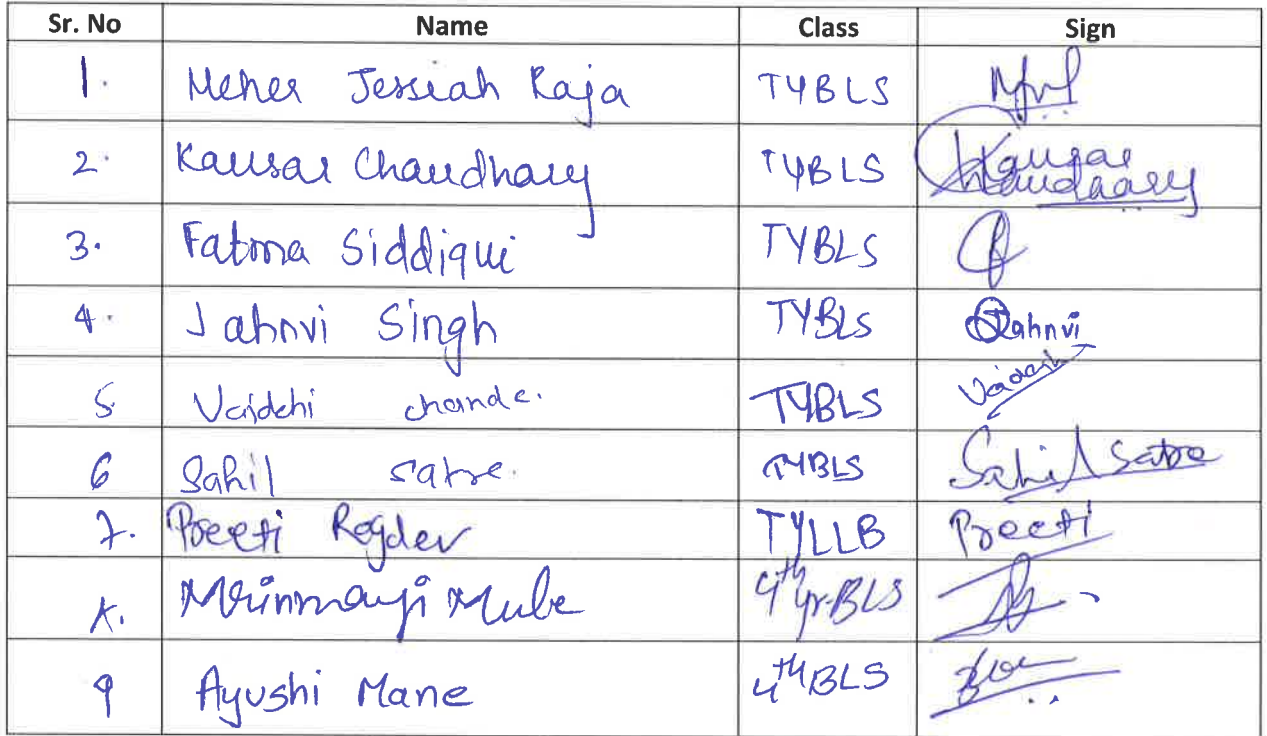 Sr. No Name Class Sign
1. Meher Jessiah Raja TYBLS
2. Kausar Chaudhary TYBLS Kausar Chaudaary
3. Fatma Siddiqui TYBLS
4. Jahnvi Singh TYBLS Jahnvi
5 Vaidehi chande. TYBLS Vaidehi
6 Sahil satre. TYBLS Sahil Satre
7. Preeti Rogdev TYLLB Preeti
Mrinmayi Mube 4th yr-BLS
9 Ayushi Mane 4th BLS